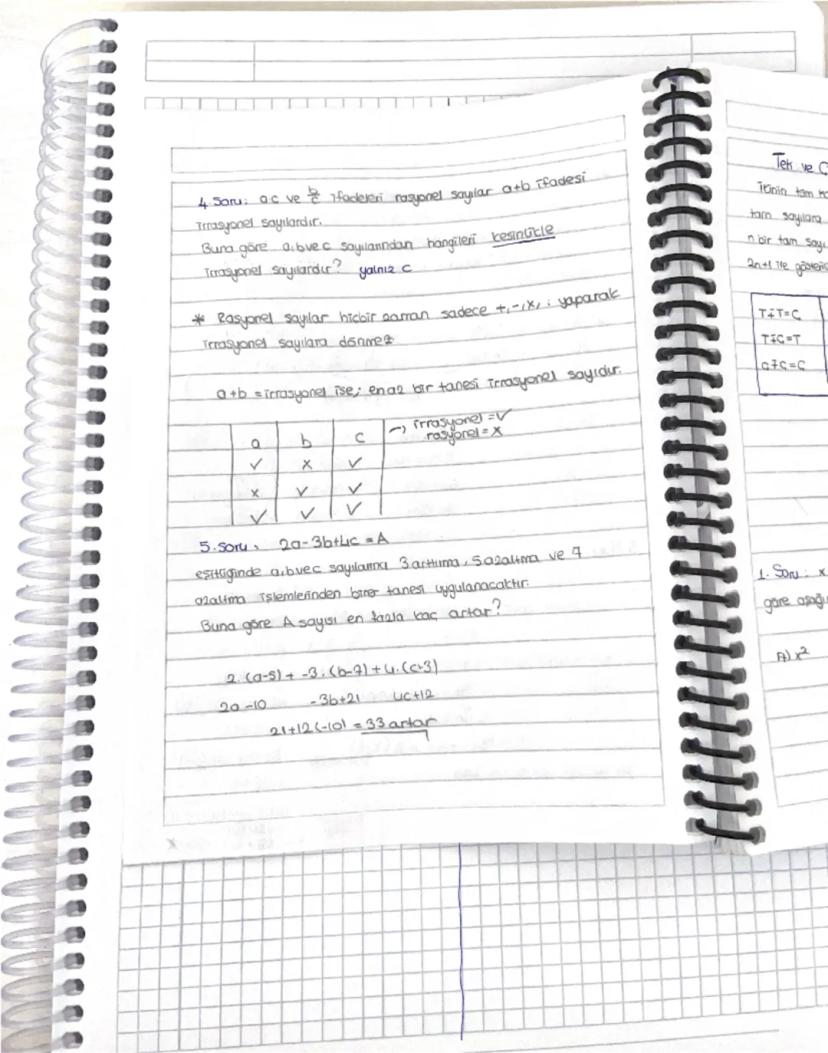 4. Soru: a.c ve b/c ifadeleri rasyonel sayılar a+b ifadesi
irrasyonel sayılardır.
Buna göre a,b ve c sayılarından hangileri kesinlikle
irrasyonel sayılardır? yalnız c
* Rasyonel sayılar hiçbir zaman sadece +,-,x,: yaparak
irrasyonel sayılara dönmez
a+b = irrasyonel ise; en az bir tanesi irrasyonel sayıdır.
a b c → irrasyonel = ✓
rasyonel = x
✓ x ✓
x ✓ ✓
✓ ✓ ✓
5. Soru: 2a-3b+4c = A
eşitliğinde a,b ve c sayılarına 3 arttırma, 5 azaltma ve 7
azaltma işlemlerinden birer tanesi uygulanacaktır.
Buna göre A sayısı en fazla kaç artar?
2.(a-5) + -3.(b-7) + 4.(c+3)
2a-10 -3b+21 4c+12
21+12(-10) = 33 artar
Tek ve Ç
tam sayılara
n bir tam sayı
2n+1 ile
T∓T=Ç
T∓Ç=T
Ç∓Ç=Ç
1. Soru: x
göre aşağı
A) x²